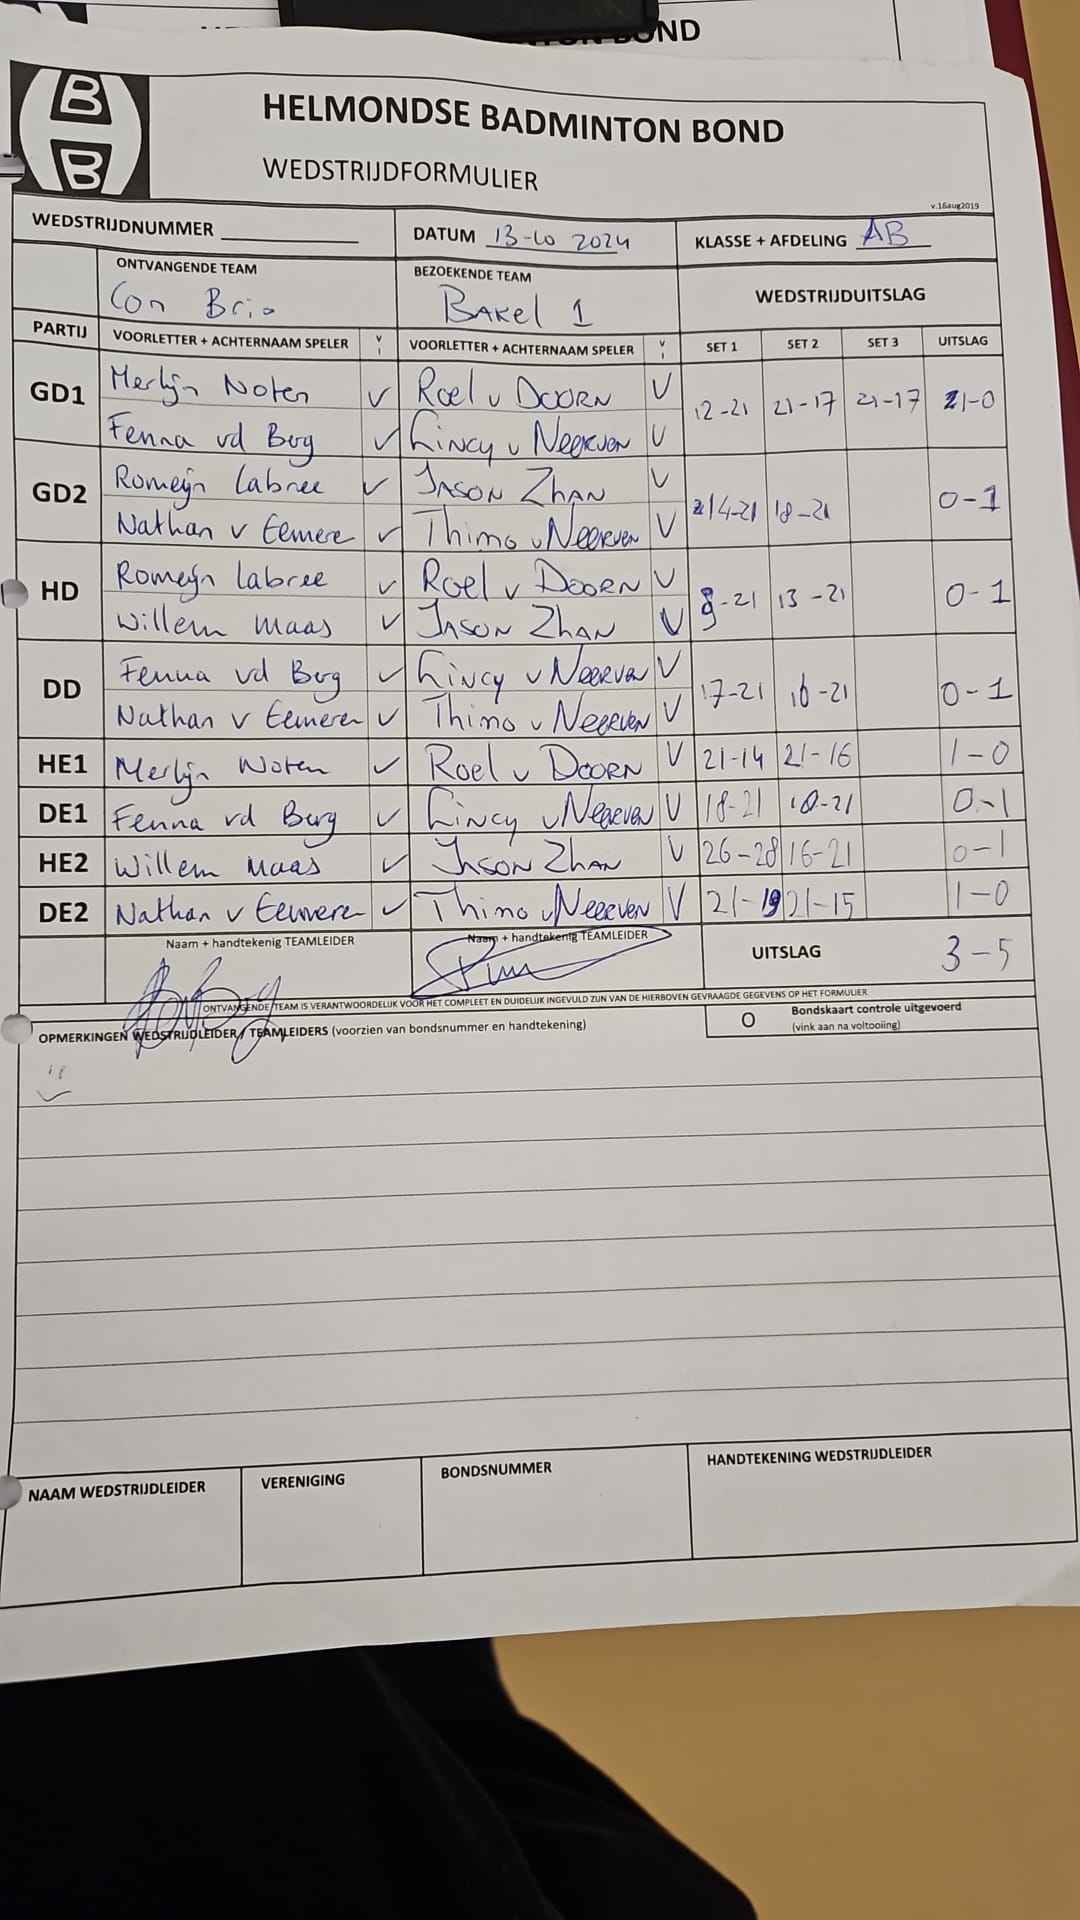 ON BOND
B
B
HELMONDSE BADMINTON BOND
WEDSTRIJDFORMULIER
v.16aug2019
WEDSTRIJDNUMMER DATUM 13-10 2024 KLASSE + AFDELING AB
ONTVANGENDE TEAM BEZOEKENDE TEAM WEDSTRIJDUITSLAG
Con Brio BAKEL 1
PARTIJ VOORLETTER + ACHTERNAAM SPELER V I VOORLETTER + ACHTERNAAM SPELER V I SET 1 SET 2 SET 3 UITSLAG
GD1 Merlijn Noten V Roel v DOORN V 12-21 21-17 21-17 1-0
Fenna vd Berg V Lincy v NEERVEN V
GD2 Romeijn Labree V JASON ZHAN V 14-21 18-21 0-1
Nathan v Eemeren V Thimo v NEERVEN V
HD Romeijn Labree V ROEL v DOORN V 9-21 13-21 0-1
Willem Maas V JASON ZHAN V
DD Fenna vd Berg V Lincy v NEERVEN V 17-21 16-21 0-1
Nathan v Eemeren V Thimo v NEERVEN V
HE1 Merlijn Noten V Roel v DOORN V 21-14 21-16 1-0
DE1 Fenna vd Berg V Lincy v NEERVEN V 18-21 10-21 0-1
HE2 Willem Maas V JASON ZHAN V 26-28 16-21 0-1
DE2 Nathan v Eemeren V Thimo v NEERVEN V 21-19 21-15 1-0
Naam + handtekenig TEAMLEIDER Naam + handtekenig TEAMLEIDER UITSLAG 3-5
ONTVANGENDE TEAM IS VERANTWOORDELIJK VOOR HET COMPLEET EN DUIDELIJK INGEVULD ZIJN VAN DE HIERBOVEN GEVRAAGDE GEGEVENS OP HET FORMULIER
OPMERKINGEN WEDSTRIJDLEIDER / TEAMLEIDERS (voorzien van bondsnummer en handtekening) O Bondskaart controle uitgevoerd
(vink aan na voltooiing)
NAAM WEDSTRIJDLEIDER VERENIGING BONDSNUMMER HANDTEKENING WEDSTRIJDLEIDER